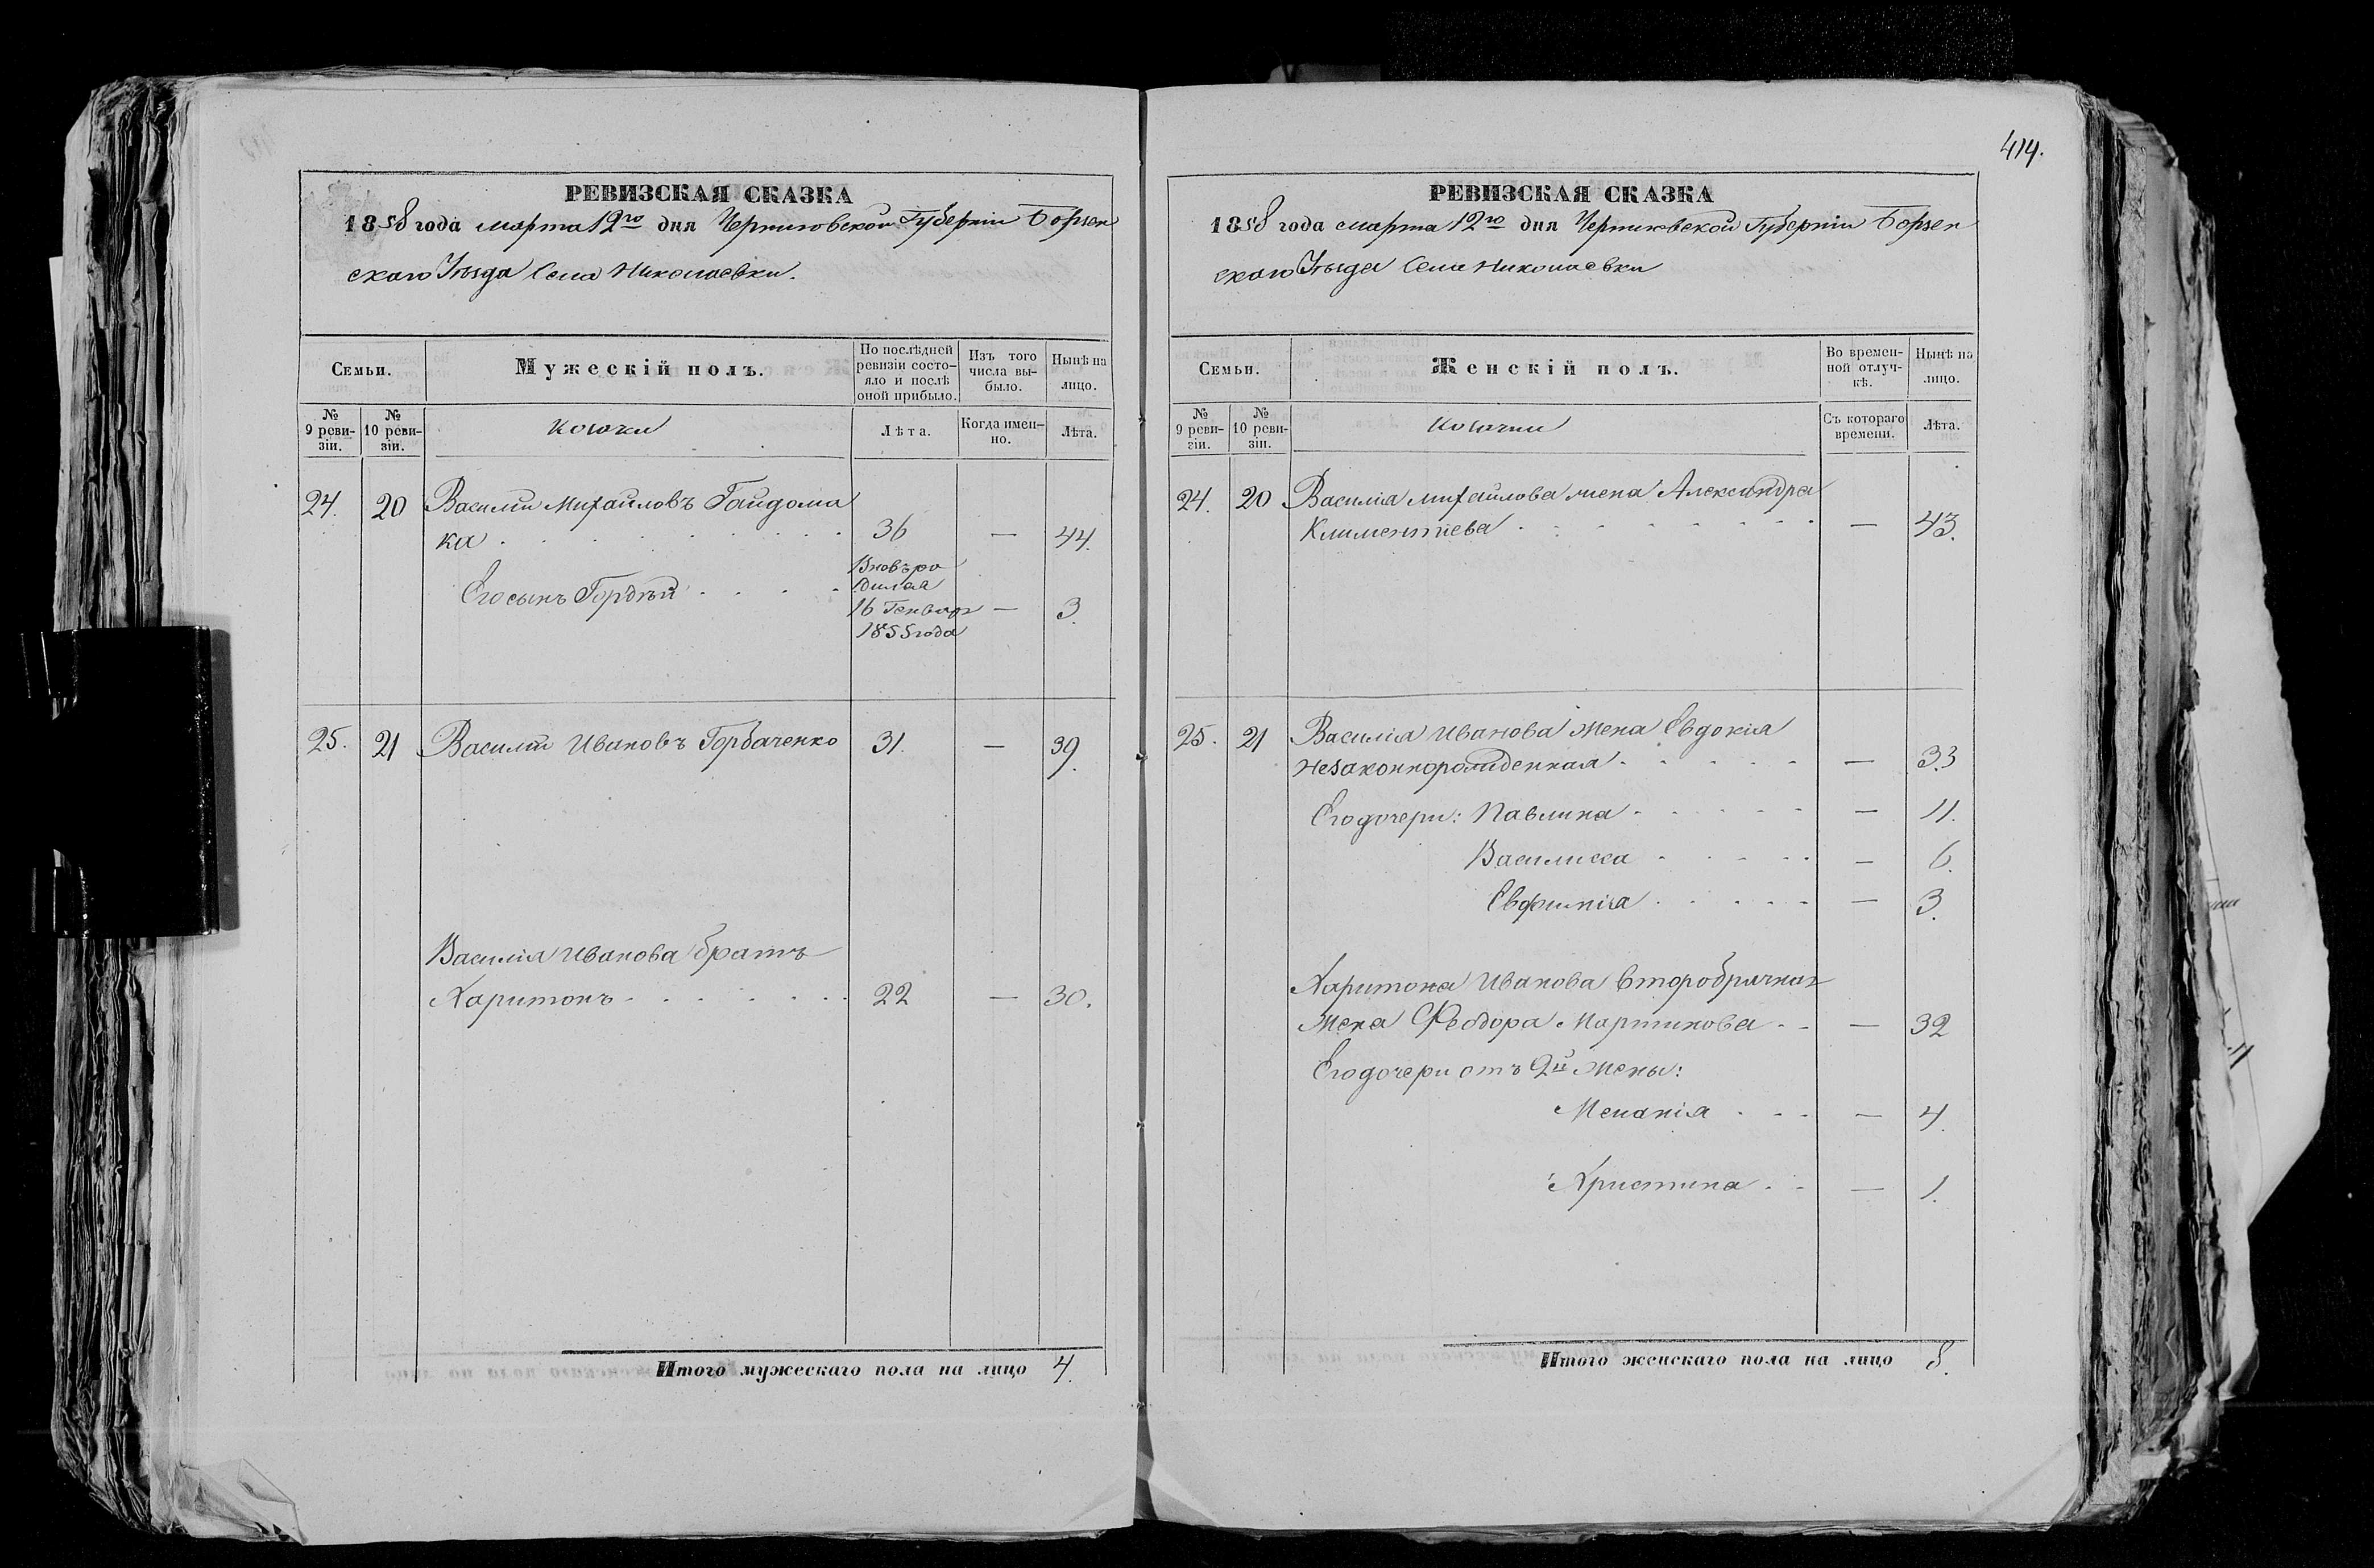 РЕВИЗСКАЯ СКАЗКА
1858 года марта 12го дня Черниговской Губерніи Борзен
скаго Уѣзда Села Николаевки.
Семьи.
Мужескій полъ.
По послѣдней ревизіи состояло и послѣ оной прибыло.
Изъ того числа выбыло.
Нынѣ на лицо.
№ 9 ревизіи.
№ 10 ревизіи.
Лѣта.
Когда именно.
Лѣта.
24. 20 Василій Михайловъ Гайдома
ка 36 — 44.
Его сынъ Гордѣй
Вновь ро
дился
16 Генвар
1855 года
— 3.
25. 21 Василій Ивановъ Горбаченко 31. — 39.
Василія Иванова братъ
Харитонъ 22 — 30.
Итого мужескаго пола на лицо 4.
414.
РЕВИЗСКАЯ СКАЗКА
1858 года марта 12го дня Черниговской Губерніи Борзен
скаго Уѣзда Села Николаевки
Семьи.
Женскій полъ.
Во временной отлучкѣ.
Нынѣ на лицо.
№ 9 ревизіи.
№ 10 ревизіи.
Съ котораго времени.
Лѣта.
24. 20 Василія Михайлова жена Александра
Климентіева — 43.
25. 21 Василія Иванова жена Евдокія
Незаконнорожденная — 33
Его дочери: Павлина — 11.
Василисса — 6.
Евфимія — 3.
Харитона Иванова второбрачная
жена Феодора Мартинова — 32
Его дочери отъ 2й жены:
Меланія — 4.
Христина — 1.
Итого женскаго пола на лицо 8.